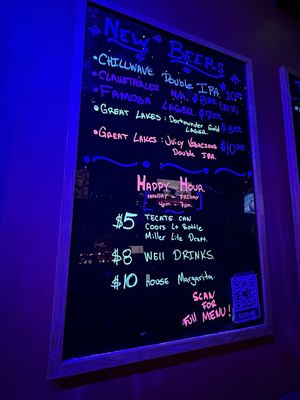 New Beers
• Chillwave Double IPA 10
• Clausthaler N.A. $8
• Famosa Lager $7
• Great Lakes: Dortmunder Gold $8
Lager
• Great Lakes: Juicy $10
Double IPA
Happy Hour
Monday - Friday
4pm - 7pm
$5 Tecate Can
Coors Lt Bottle
Miller Lite Draft
$8 Well Drinks
$10 House Margarita
Scan
For
Full Menu!